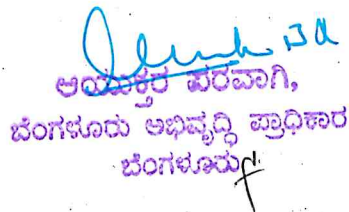 ಆಯುಕ್ತರ ಪರವಾಗಿ,
ಬೆಂಗಳೂರು ಅಭಿವೃದ್ಧಿ ಪ್ರಾಧಿಕಾರ
ಬೆಂಗಳೂರು